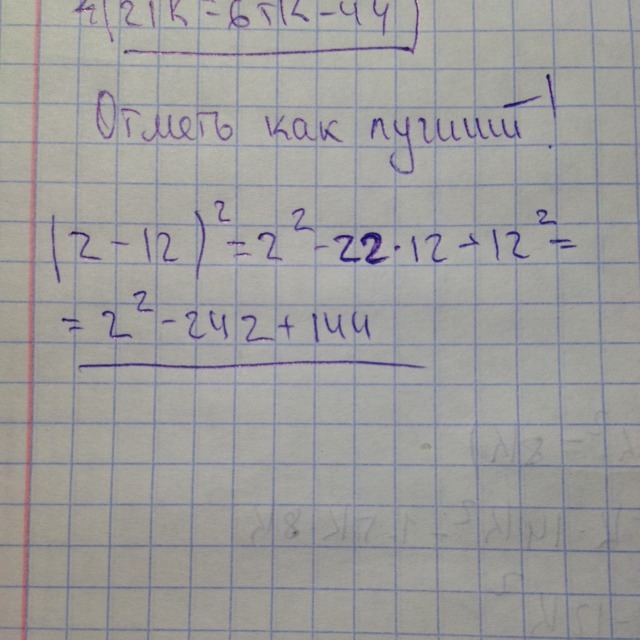 Отметь как лучший!
(z-12)²=z²-2z·12+12²=
=z²-24z+144